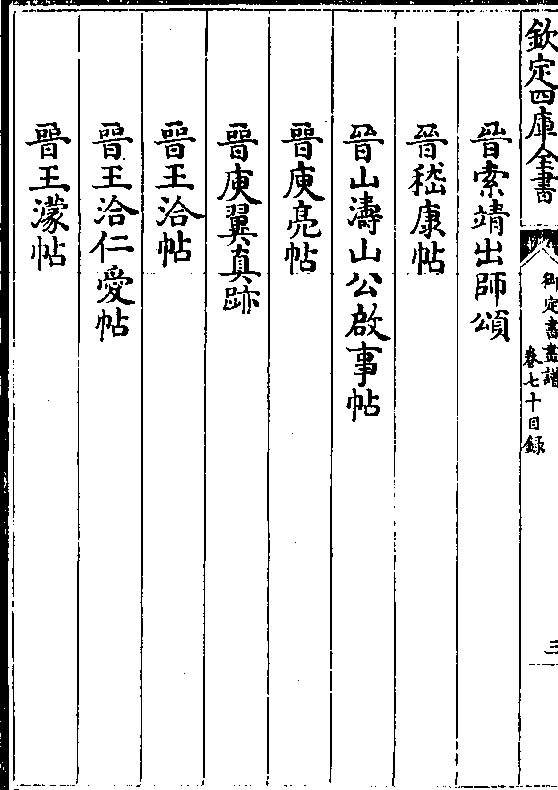 欽定四庫全書
御定書畫譜
卷七十目録
三
晉索靖出師頌
晉嵇康帖
晉山濤山公啟事帖
晉庾亮帖
晉庾翼真跡
晉王洽帖
晉王洽仁愛帖
晉王濛帖